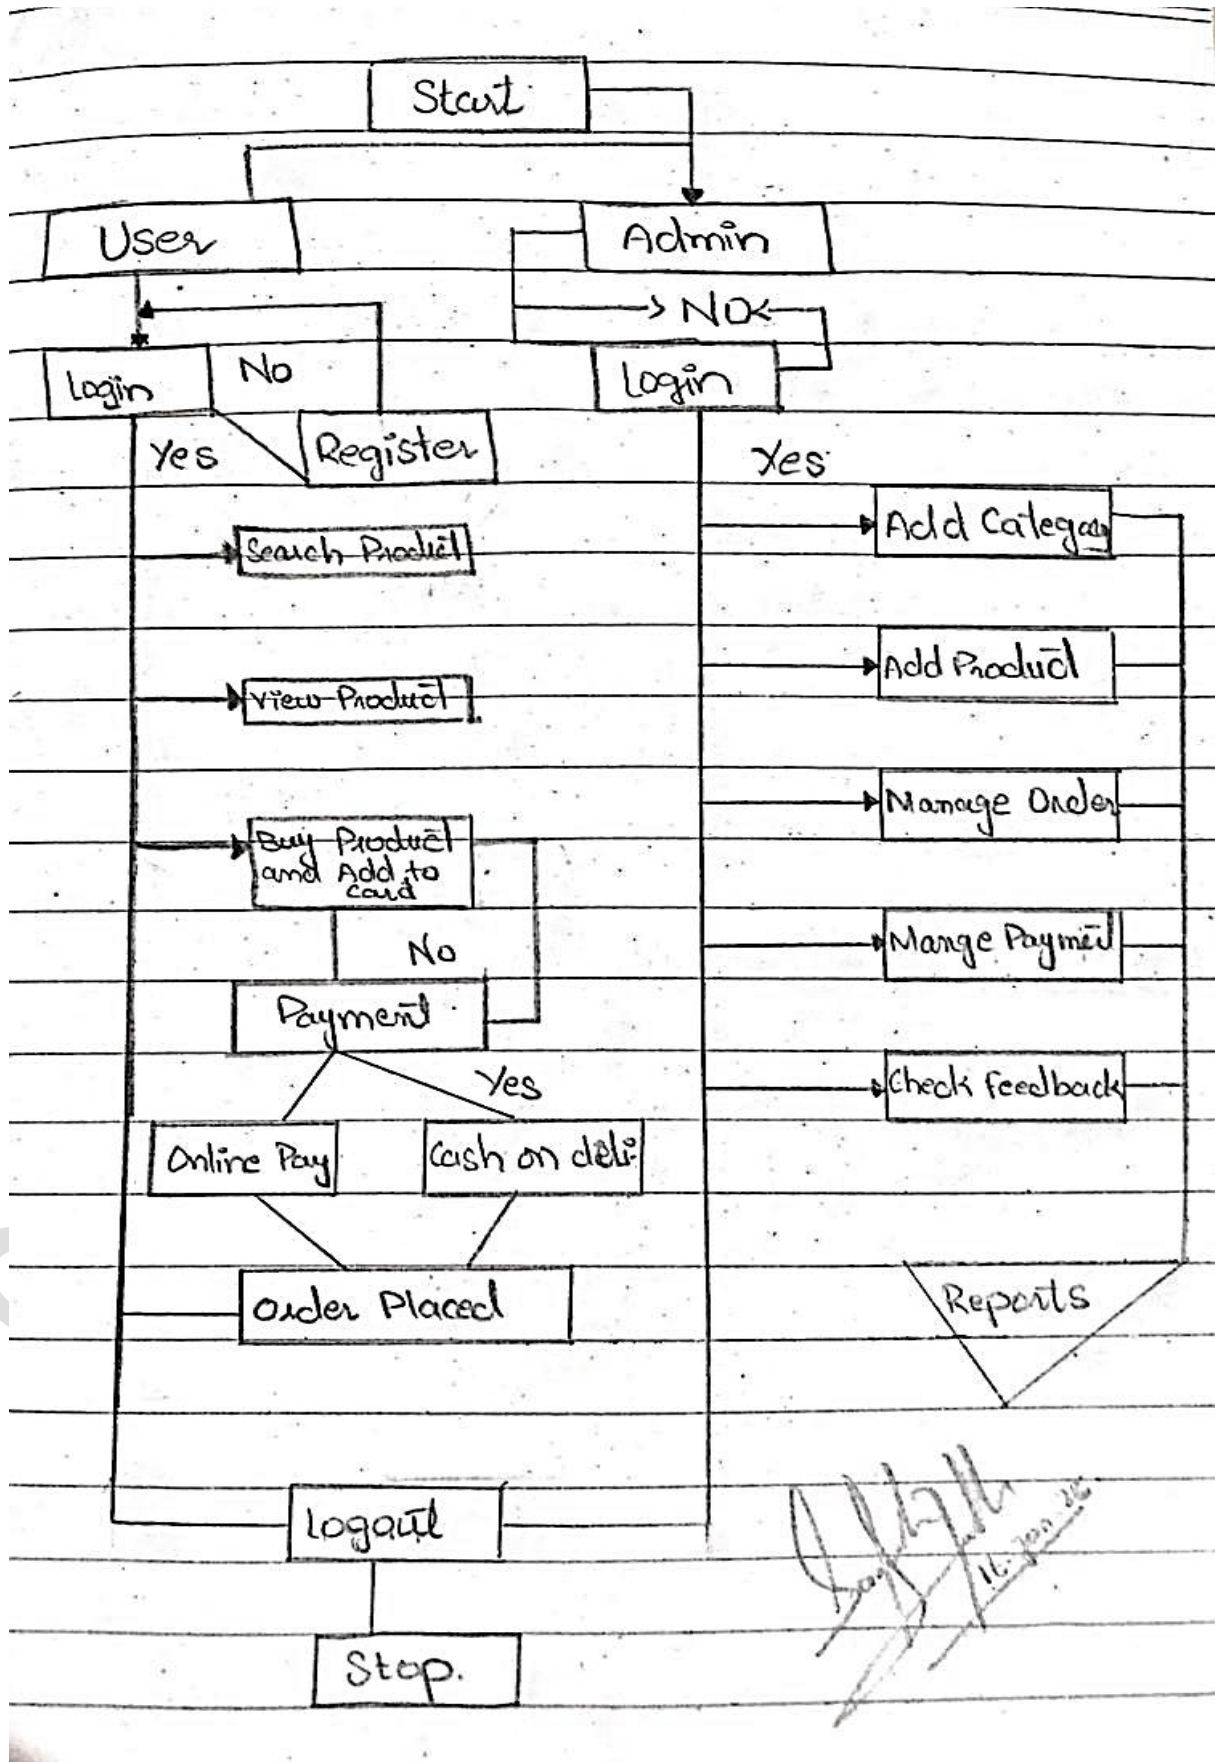 Start
User
Admin
NO
Login
No
Login
Yes
Register
Yes
Search Product
Add Category
View Product
Add Product
Buy Product
and Add to
card
Manage Order
No
Mange Payment
Payment
Yes
Check feedback
Online Pay
Cash on deli.
Order Placed
Reports
Logout
Stop.